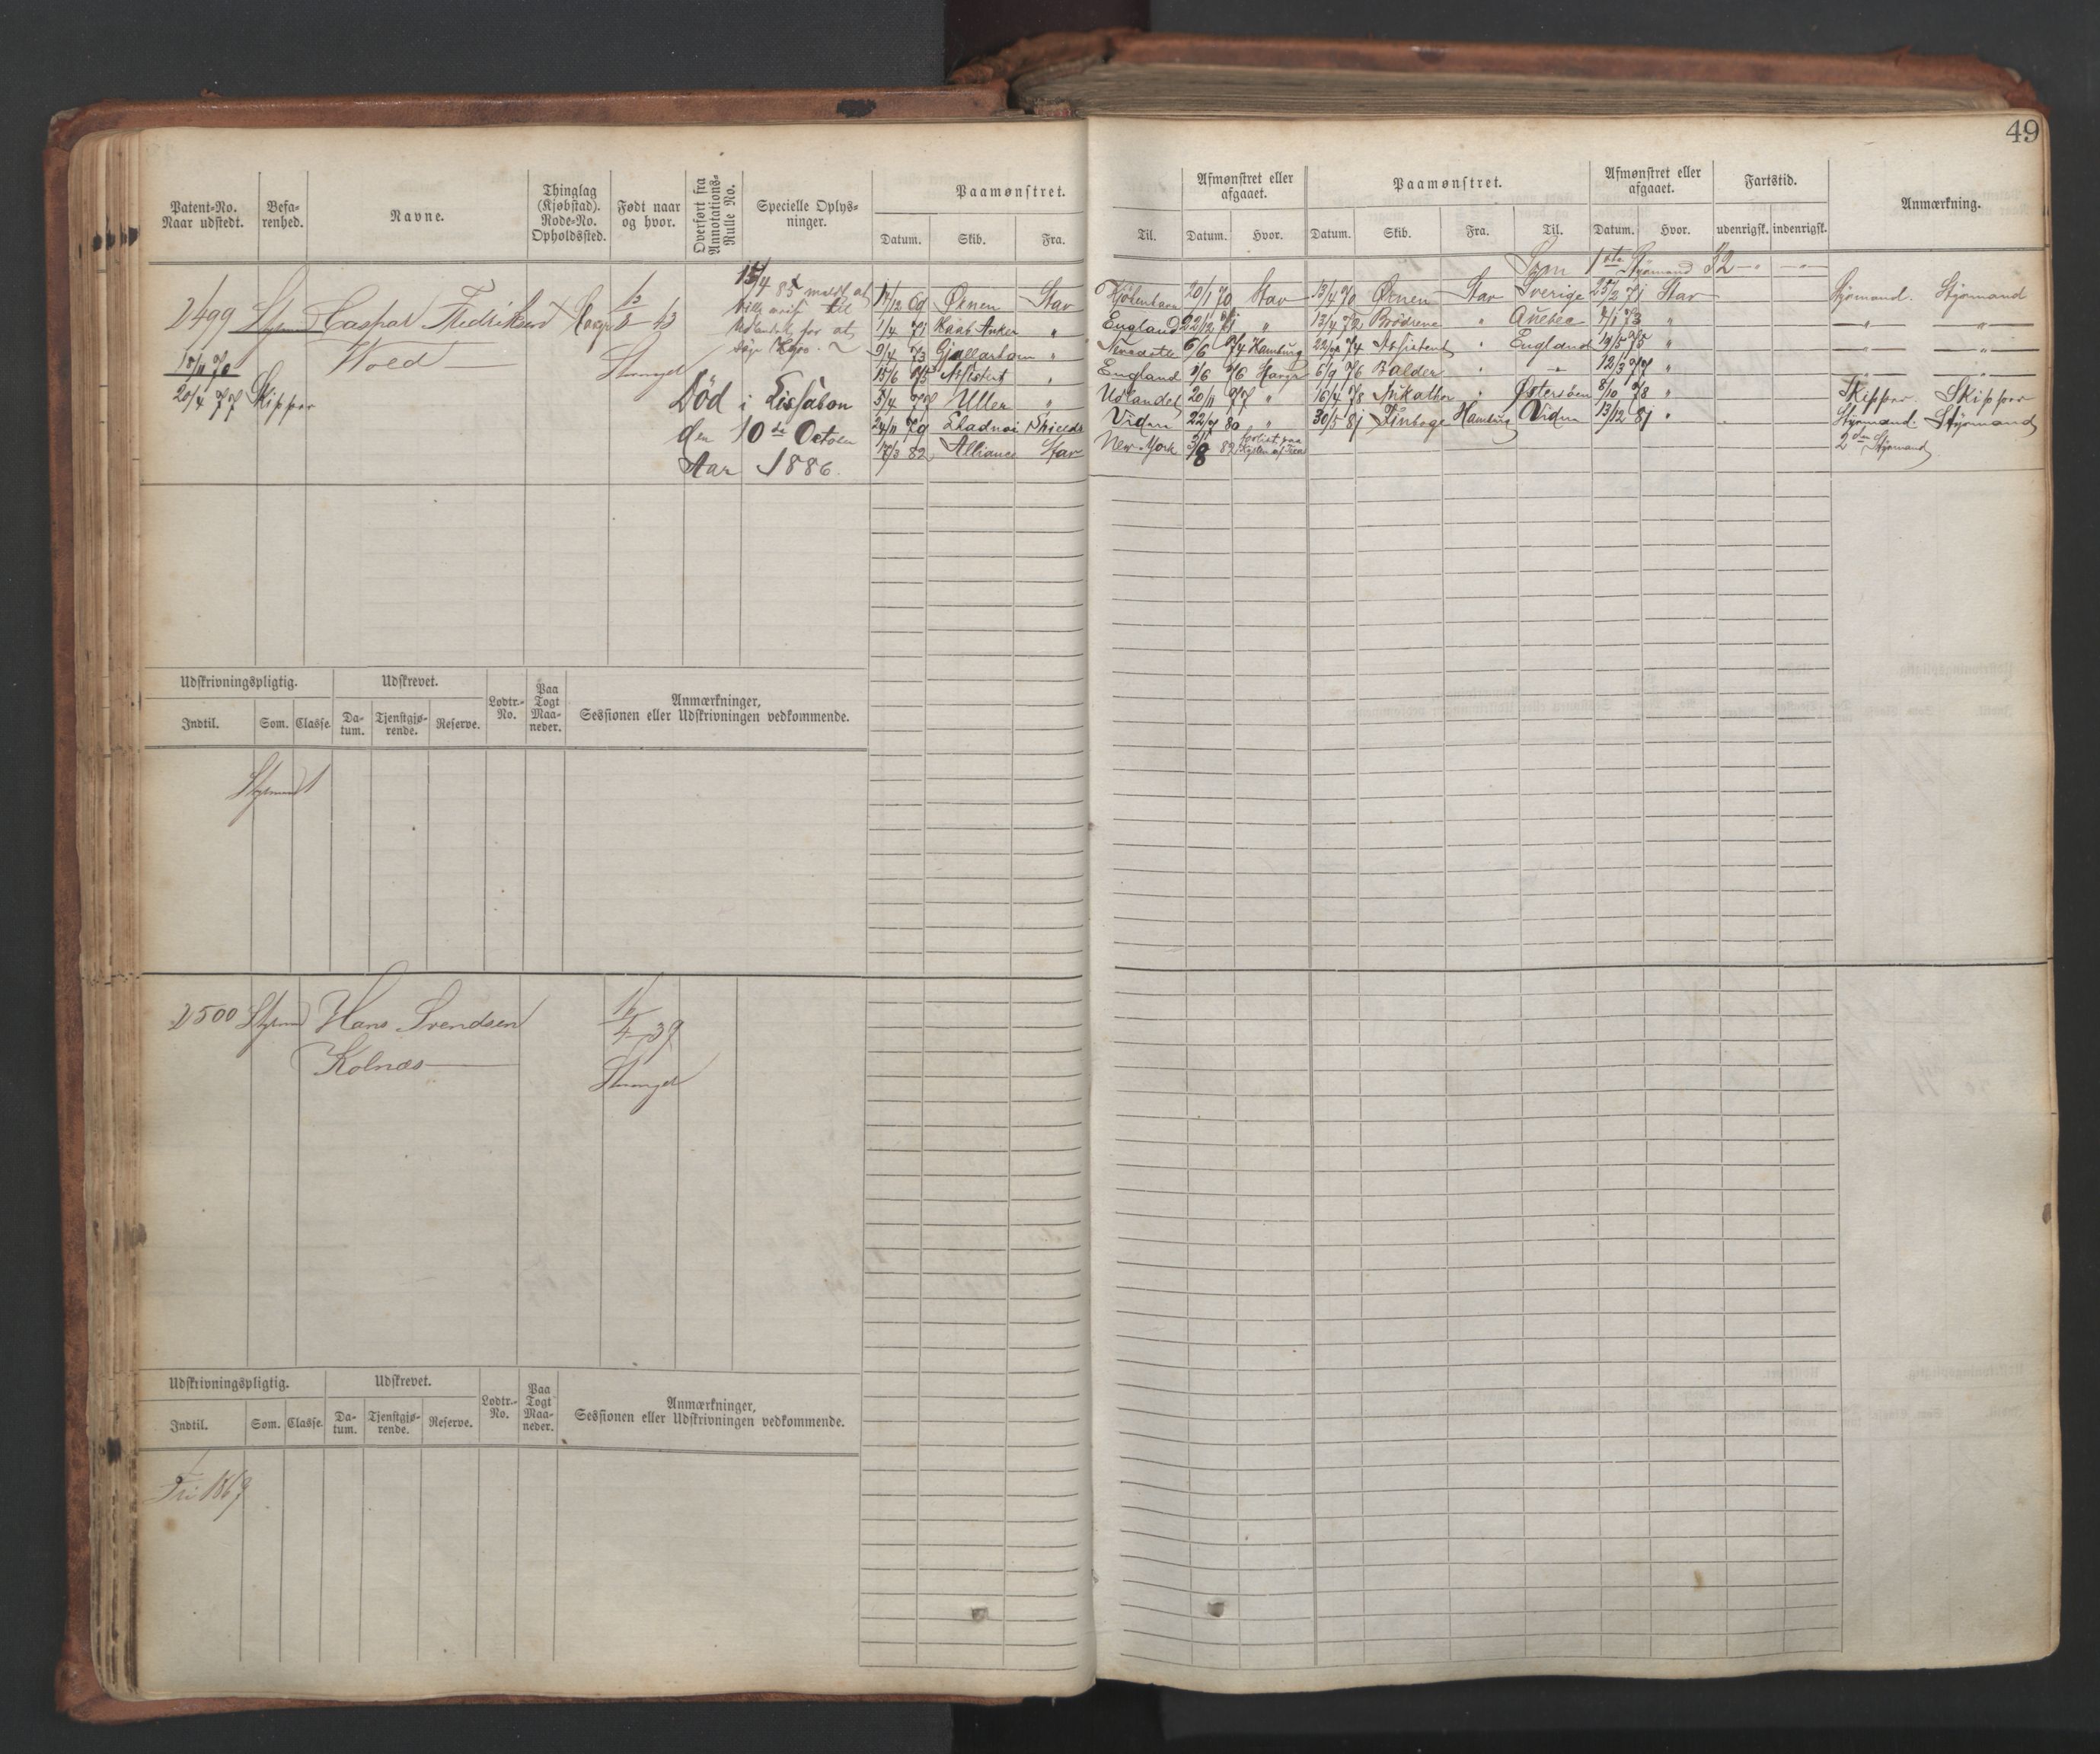 49
Patent-No. Naar udstedt.
Befarenhed.
Navne.
Thinglag (Kjøbstad). Rode-No. Opholdssted.
Født naar og hvor.
Overført fra Annotations-Rulle No.
Specielle Oplysninger.
Paamønstret.
Datum. Skib. Fra. Til.
Afmønstret eller afgaaet.
Datum. Hvor.
Paamønstret.
Datum. Skib. Fra. Til.
Afmønstret eller afgaaet.
Datum. Hvor.
Fartstid.
udenrigsk. indenrigsk.
Anmærkning.
Som 1ste Styrmand
2499 Styrmand Caspar Fedriksen
Woed
15/11 70
20/4 77 Skipper
15/4 85 meldt at
for at
Død i Lissabon
den 10de Octob
Aar 1886.
17/12 69 Ørnen Stav Kjöbenhavn 20/1 70 Stav 13/4 70 Ørnen Stav Sverige 25/2 71 Stav Styrmand. Styrmand
1/4 71 Haab Anker " England 22/12 71 " 13/4 72 Brödrene " Quebec 4/1 73 "
9/4 73 Gjallarhorn " 6/6 74 Hamburg 74 Assistent " England 19/5 75 "
15/6 75 Assistent " England 1/6 76 6/9 76 Balder " " 12/3 77 "
5/4 77 Uller " Udlandet 20/11 77 " 16/4 78 " Østersöen 8/10 78 " Skipper. Skipper
24/11 79 Shields Viden 22/7 80 " 30/5 81 Finboge Hamburg Viden 13/12 81 " Styrmand. Styrmand
17/3 82 Alliance Stav New-York 3/8 82 forlist paa Kysten af 2den Styrmand
Udskrivningspligtig.
Indtil. Som. Classe.
Udskrevet.
Datum. Tjenstgjørende. Reserve.
Lodtr.-No.
Paa Togt Maaneder.
Anmærkninger, Sessionen eller Udskrivningen vedkommende.
Styrmand
2500 Styrmd Hans Svendsen
Kolnæs
16/4 39
Udskrivningspligtig.
Indtil. Som. Classe.
Udskrevet.
Datum. Tjenstgjørende. Reserve.
Lodtr.-No.
Paa Togt Maaneder.
Anmærkninger, Sessionen eller Udskrivningen vedkommende.
Fri 1867